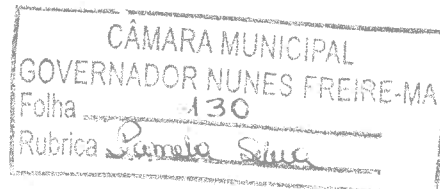 CÂMARA MUNICIPAL
GOVERNADOR NUNES FREIRE-MA
Folha 130
Rubrica Pamela